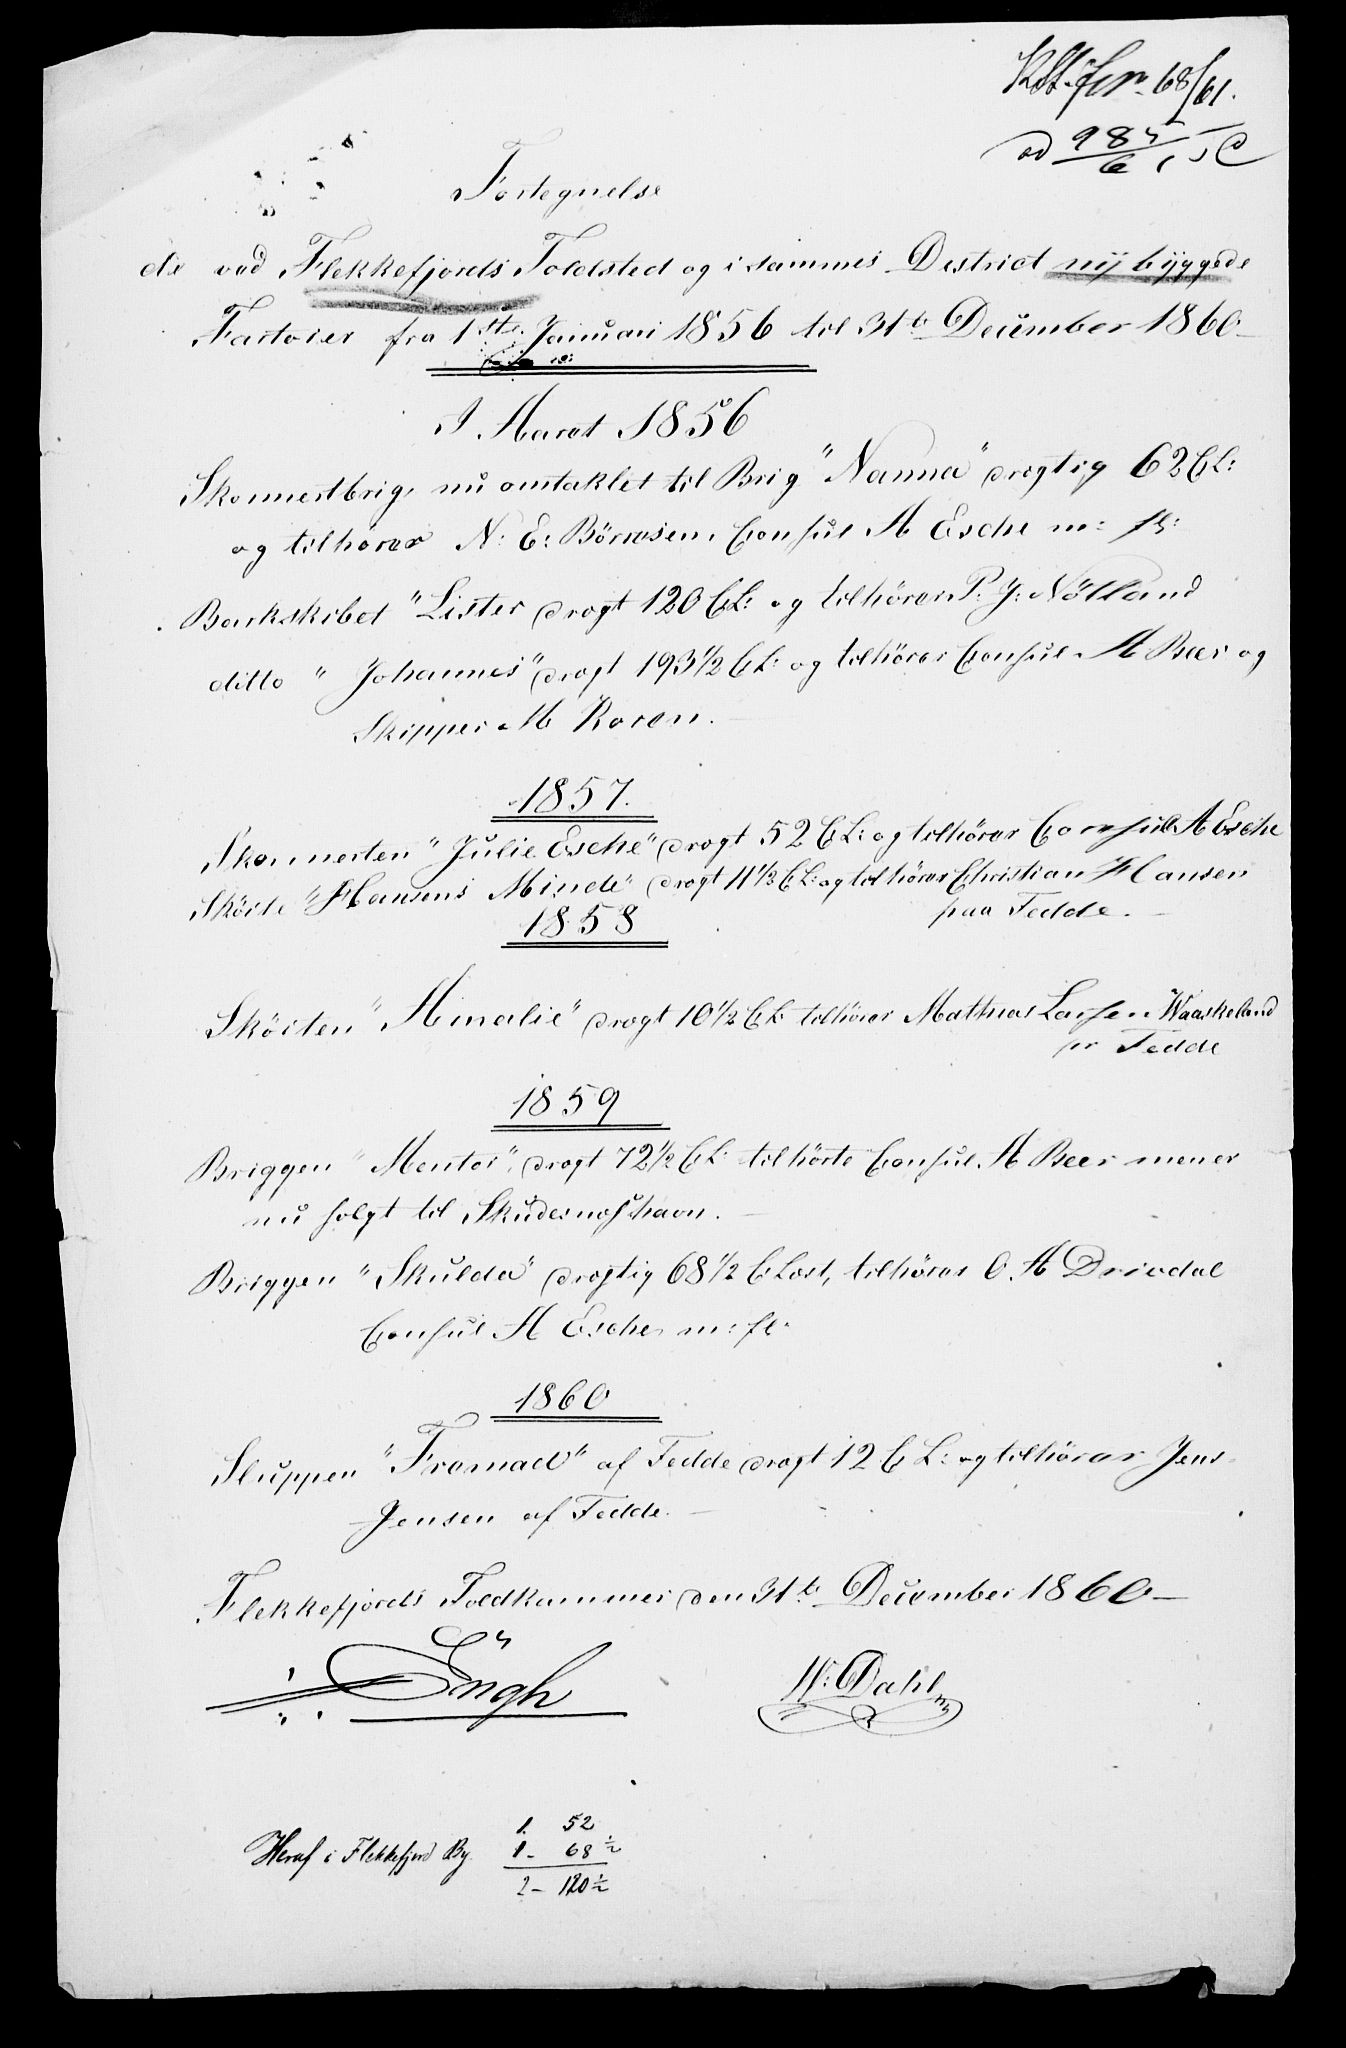 68/61.
ad 985/6 1 C
Fortegnelse
de ved Flekkefjords Toldsted og i sammes District nÿ bÿggede
Fartoier fra 1ste Januari 1856 til 31te December 1860
I Aaret 1856
Skonnertbrig, nu omtaklet til Brig "Nanna" drogtig 62 CL:
og tilhører N: E: Börresen, Consul A Esche m: fl:
Barkskibet "Lister drogt 120 CL: og tilhörer P. J: Nötland
ditto " Johannes" drogt 193 1/2 CL: og tilhörer Consul A Beer og
Skipper M Roren.
1857.
Skonnerten "Julie Esche" drogt 52 CL: og tilhörer Consul A Esche
Sköite "Hansens Minde" drogt 11 1/2 CL: og tilhörer Christian Hansen
paa Fedde.
1858
Sköiten "Amalie" drogt 10 1/2 CL: tilhörer Mathias Larsen Waaskeland
pr Fedde
1859
Briggen "Mentor", drogt 72 1/2 CL: tilhörte Consul A Beer men er
nu solgt til Skudesnæshavn.
Briggen "Skulda" drogtig 68 1/2 C Lost, tilhörer O. A Drivdal
Consul A Esche m: fl:
1860
Sluppen "Fremad" af Fedde drogt 12 C L: og tilhörer Jens
Jensen af Fedde.
Flekkefjords Toldkammer den 31te December 1860
Öngh
H: Dahl
1. 52
Heraf i Flekkefjord By. 1 - 68 1/2
2 - 120 1/2